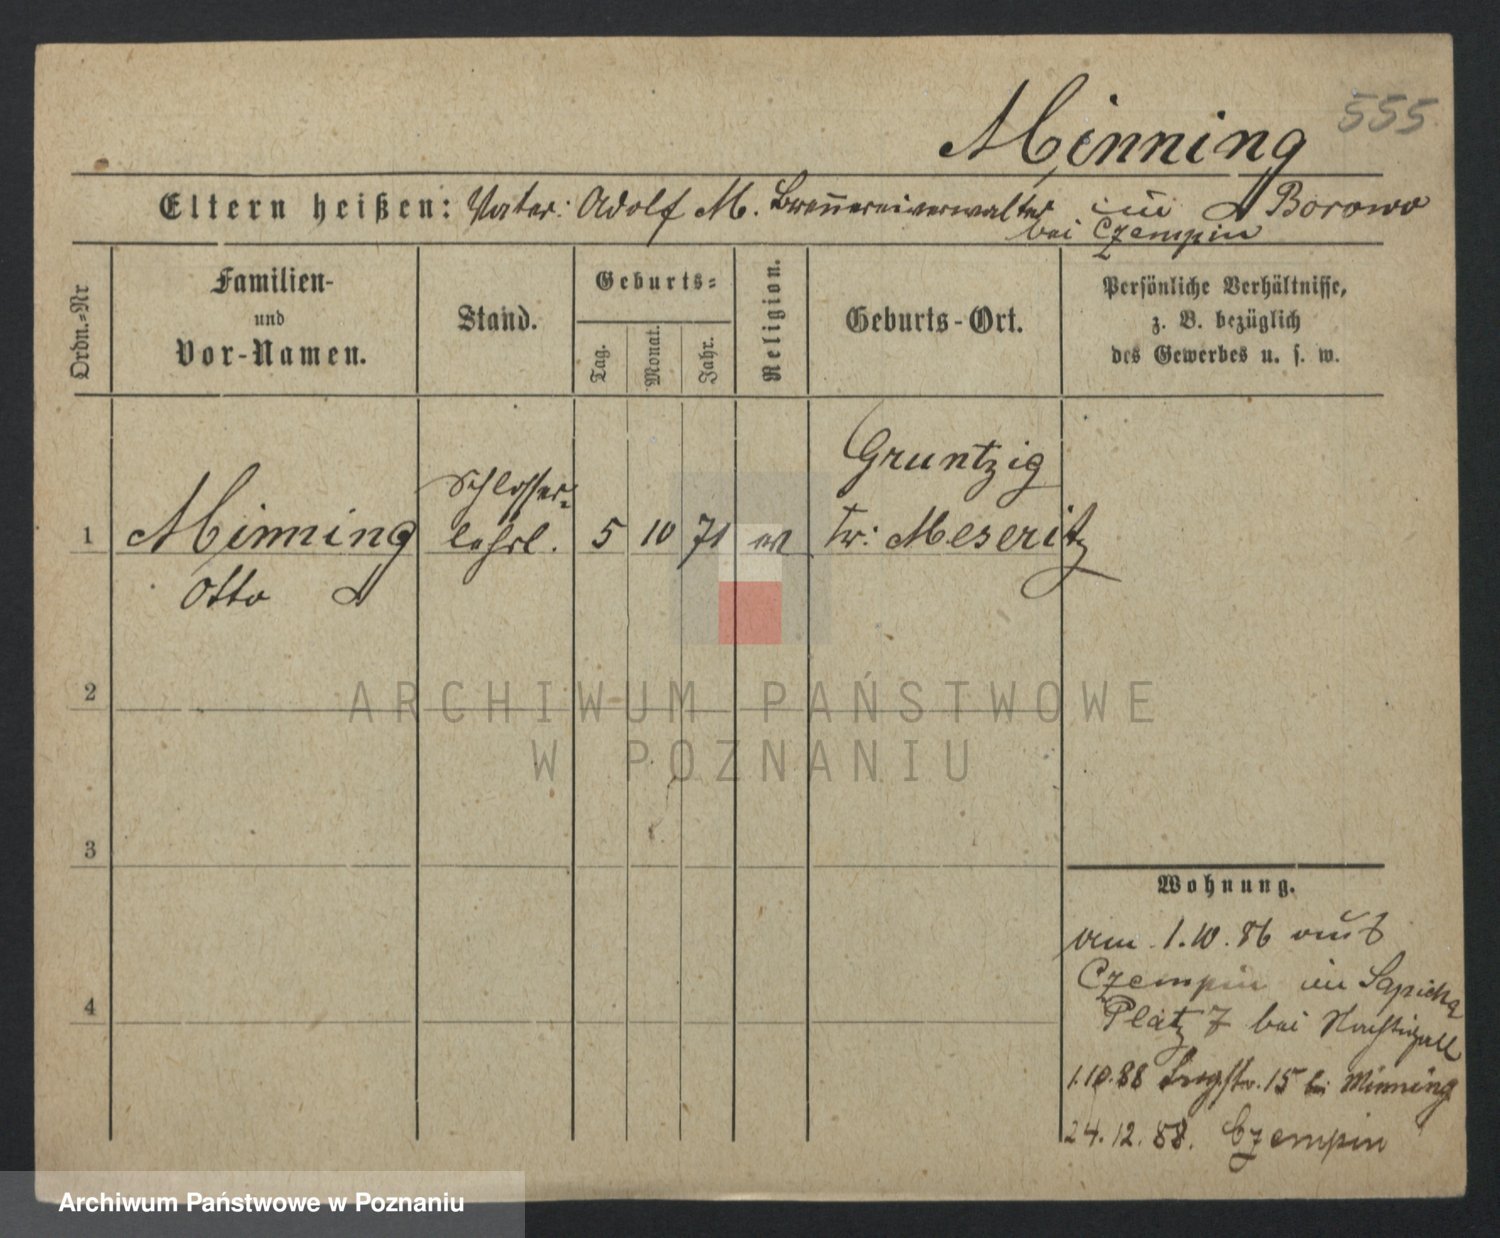 555
Minning
Eltern heißen: Vater: Adolf M. Brennereiverwalter in Borowo
bei Czempin
Ordn.-Nr
Familien-
und
Vor-Namen.
Stand.
Geburts-
Tag.
Monat.
Jahr.
Religion.
Geburts-Ort.
Persönliche Verhältnisse,
z. B. bezüglich
des Gewerbes u. s. w.
Gruntzig
Schlosser-
1 Minning lehrl. 5 10 71 ev Kr: Meseritz
Otto
2
ARCHIWUM PAŃSTWOWE
W POZNANIU
3
Wohnung.
am 1.10.86 aus
Czempin in Sapieha
4
Platz 7 bei Nachtigall
1.10.88 15 bei Minning
24.12.88. Czempin
Archiwum Państwowe w Poznaniu